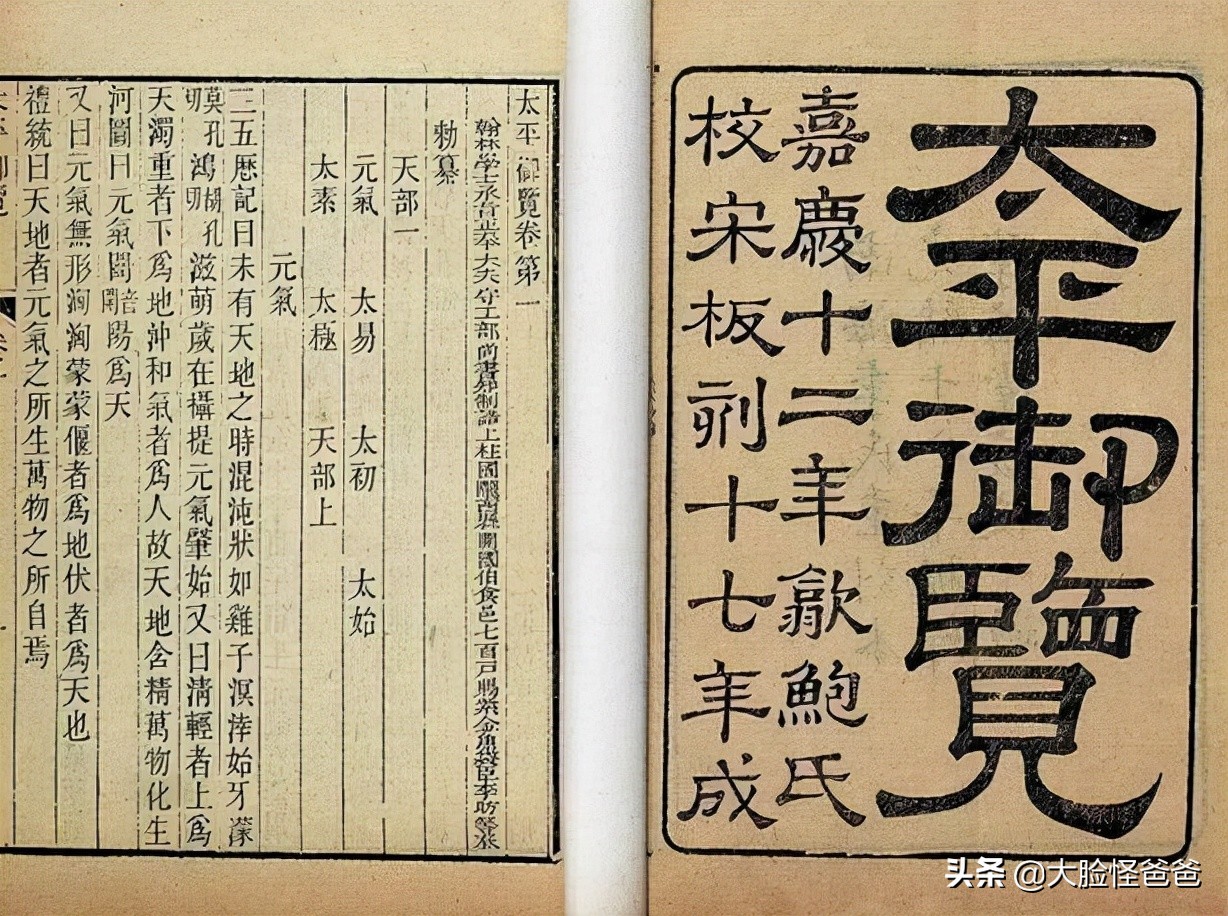 太平御覽
嘉慶十二年歙鮑氏
校宋板刻十七年成
太平御覽卷第一
翰林學士承旨正奉大夫守工部尚書知制誥上柱國隴西縣開國伯食邑七百戶賜紫金魚袋臣李昉等奉
勅纂
天部一
元氣 太易 太初 太始
太素 太極 天部上
元氣
三五歷記曰未有天地之時混沌狀如雞子溟涬始牙濛
莫孔切鴻胡孔切滋萌歲在攝提元氣肇始又曰清輕者上爲
天濁重者下爲地沖和氣者爲人故天地含精萬物化生
河圖曰元氣闓陽爲天
又曰元氣無形洶洶蒙蒙偃者爲地伏者爲天也
禮統曰天地者元氣之所生萬物之所自焉
头条 @大脸怪爸爸